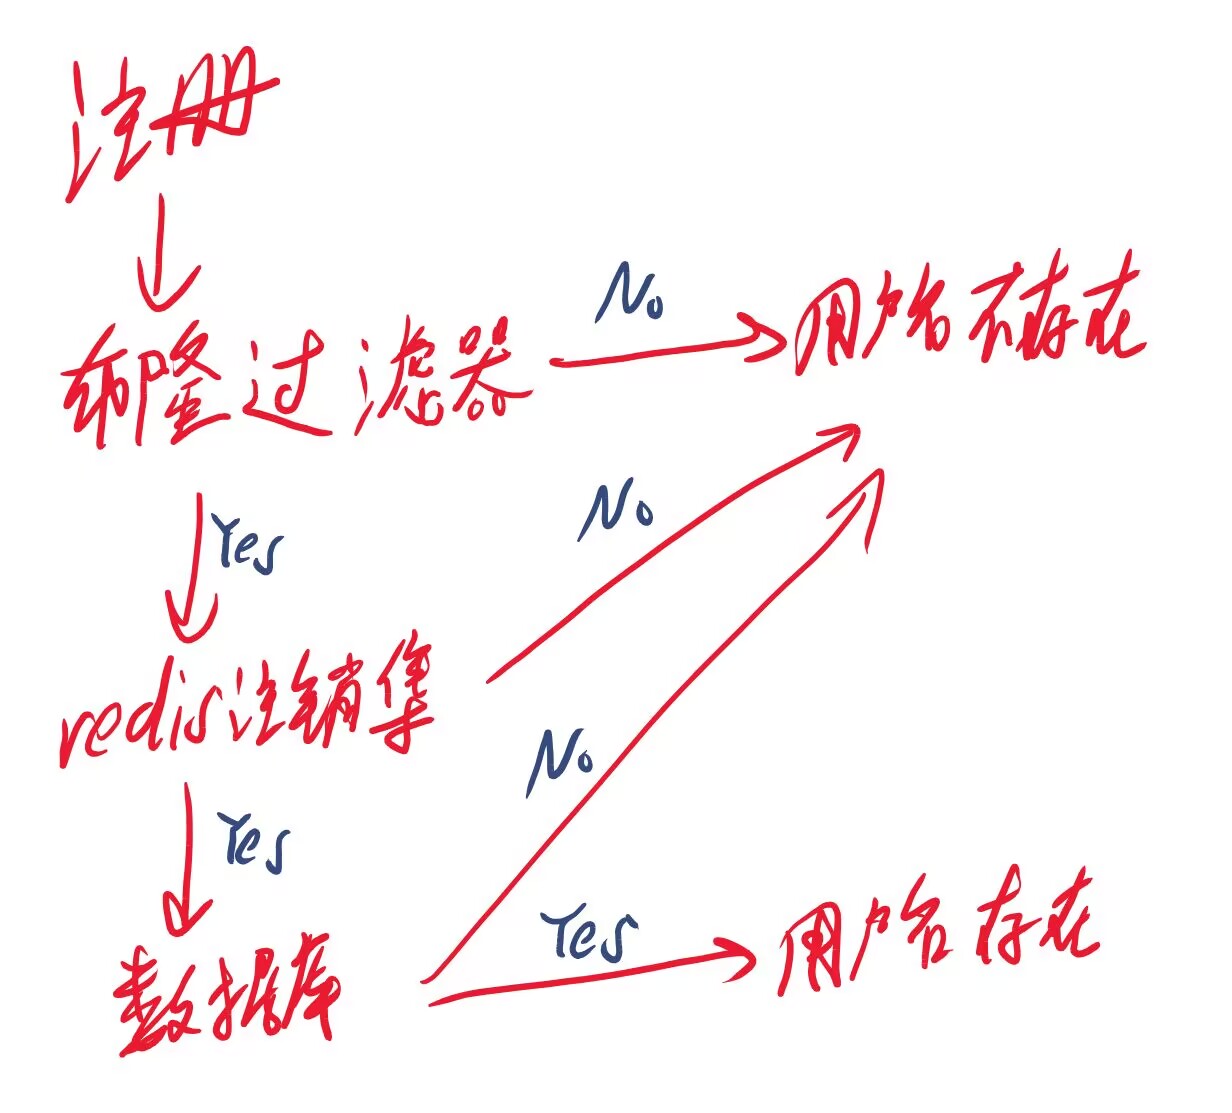 注册
布隆过滤器
No
用户名不存在
Yes
No
redis注销集
No
Yes
数据库
Yes
用户名存在